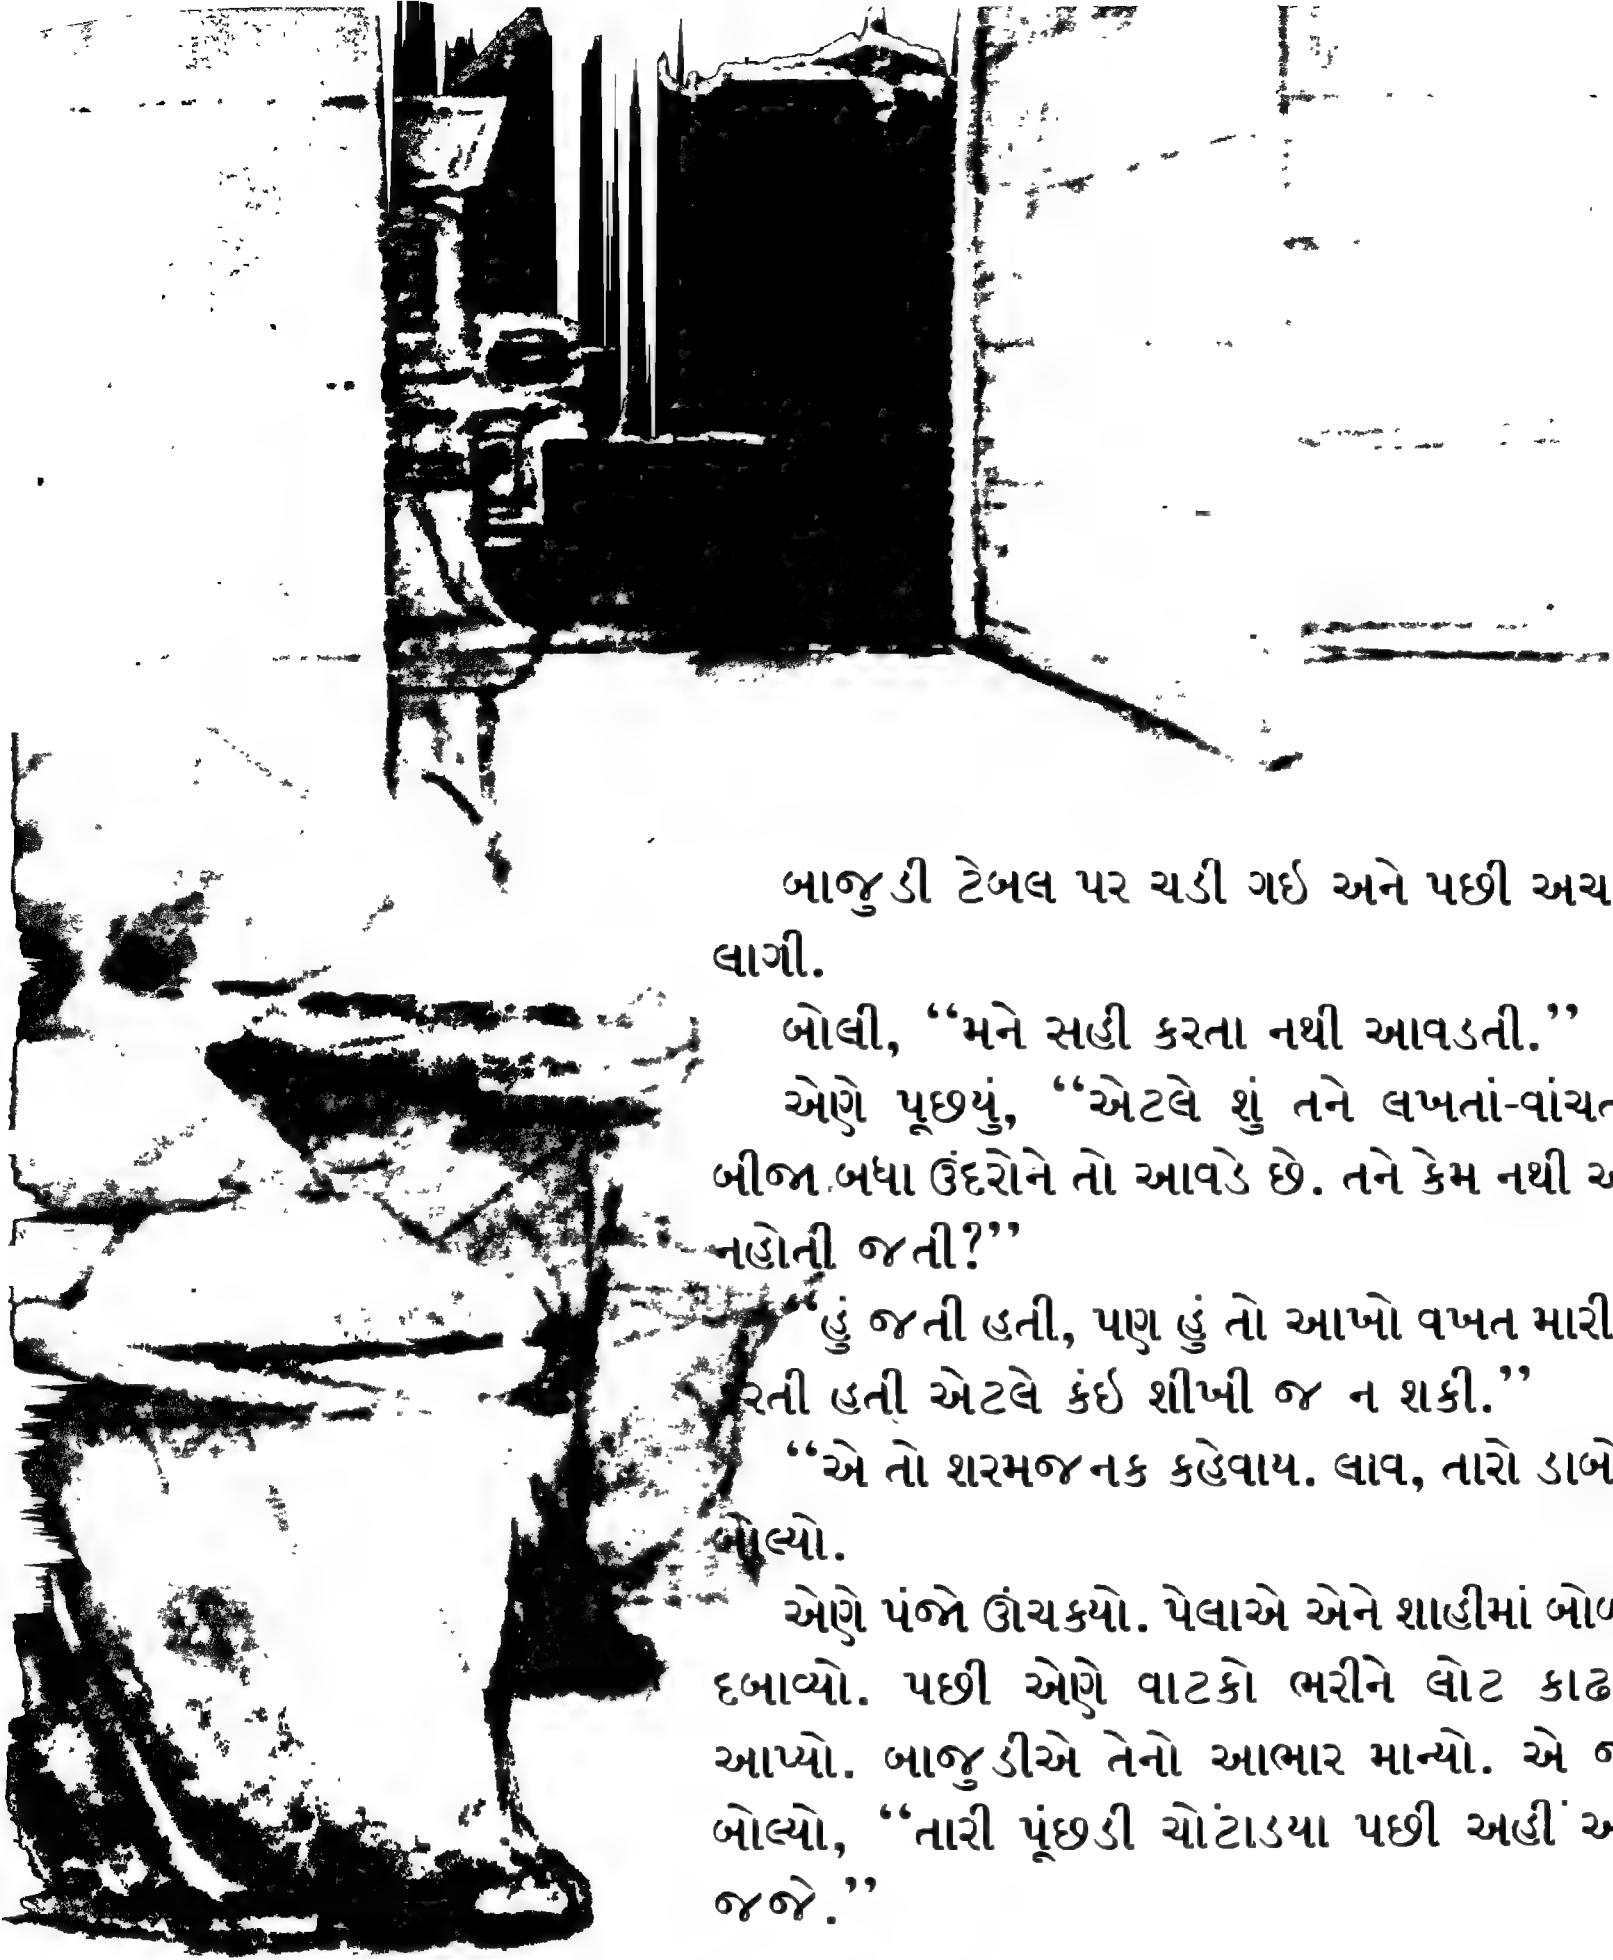 બાજુડી ટેબલ પર ચડી ગઇ અને પછી
લાગી.
બોલી, “મને સહી કરતા નથી આવડતી.”
એણે પૂછયું, “એટલે શું તને
બીજા બધા ઉંદરોને તો આવડે છે. તને કેમ નથી
નહોતી જતી?”
“હું જતી હતી, પણ હું તો આખો વખત મારી
હતી એટલે કંઇ શીખી જ ન શકી.”
“એ તો શરમજનક કહેવાય. લાવ, તારો
બોલ્યો.
એણે પંજો ઊંચકયો. પેલાએ એને શાહીમાં
દબાવ્યો. પછી એણે વાટકો ભરીને લોટ
આપ્યો. બાજુડીએ તેનો આભાર માન્યો. એ
બોલ્યો, “તારી પૂંછડી ચોંટાડયા પછી અહીં
જજે.”